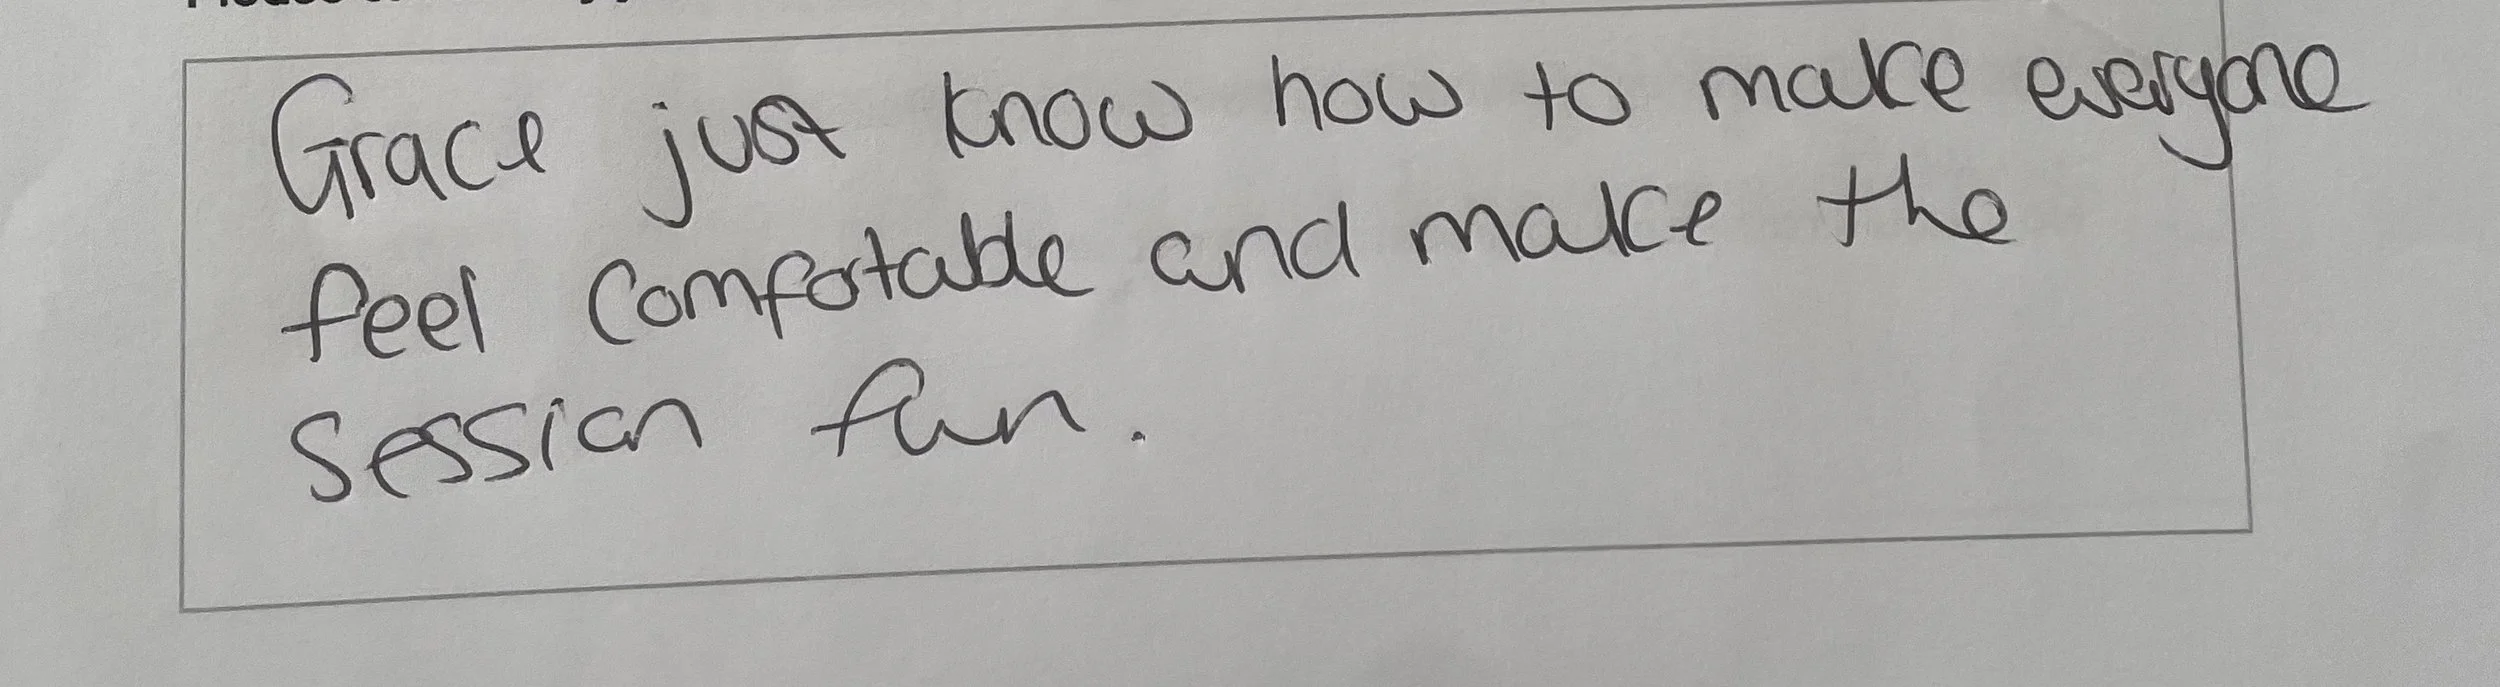 Grace just know how to make everyone
feel comfortable and make the
session fun.